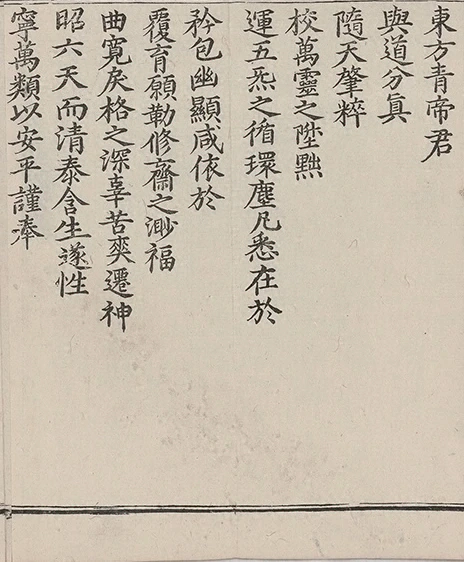 東方青帝君
與道分眞
隨天肇粹
校萬靈之陞黜
運五炁之循環塵凡悉在於
矜包幽顯咸依於
覆育願勤修齋之渺福
曲寬戾格之深辜苦爽遷神
昭六天而清泰含生遂性
寧萬類以安平謹奉